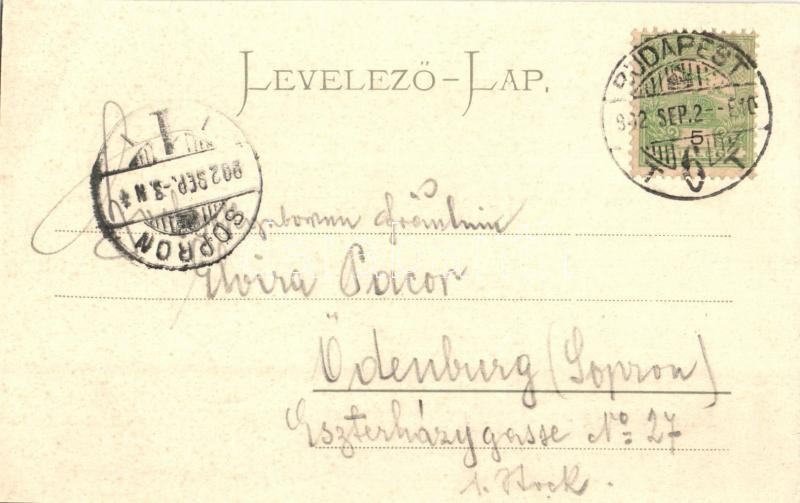 LEVELEZŐ-LAP.
BUDAPEST
892 SEP. 2
5
902 SEP.-3.N
SOPRON
Fräulein
Elvira Pacor
Ödenburg (Sopron)
Eszterházygasse No 27
1. Stock.